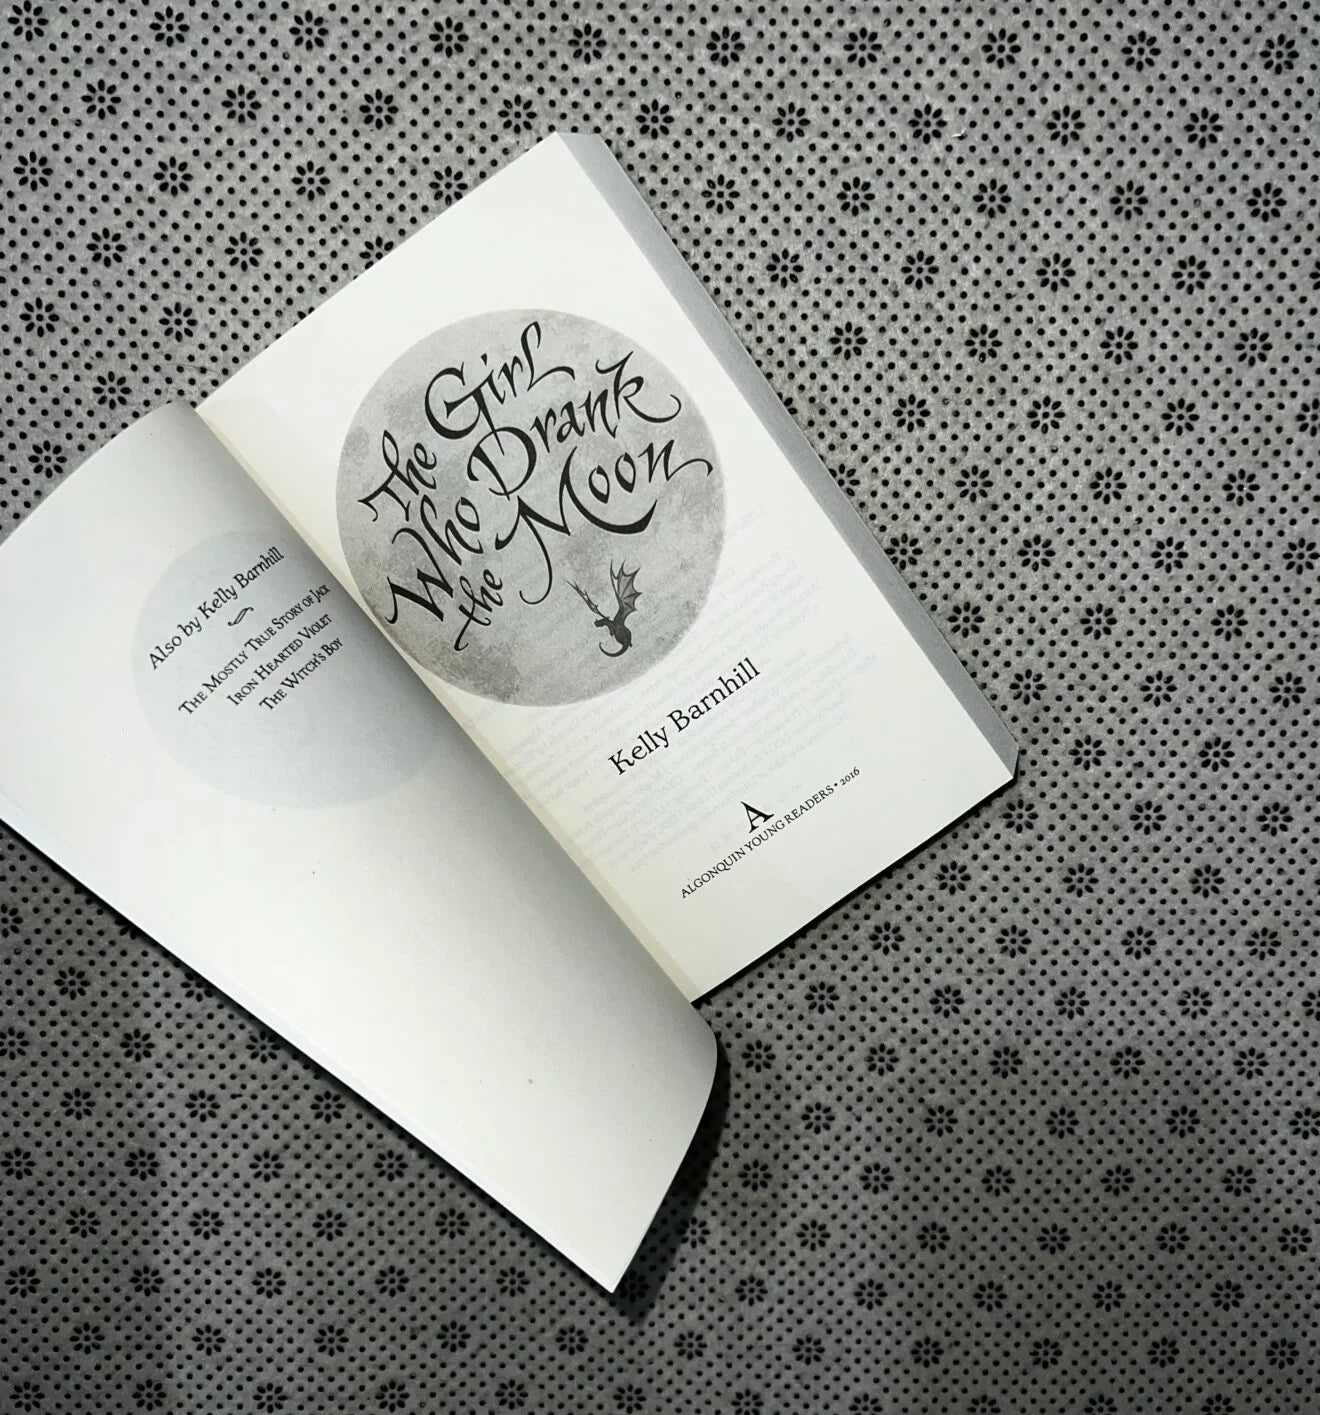 Also by Kelly Barnhill
The Mostly True Story of Jack
Iron Hearted Violet
The Witch's Boy
The Girl
Who Drank
the Moon
Kelly Barnhill
A
ALGONQUIN YOUNG READERS • 2016